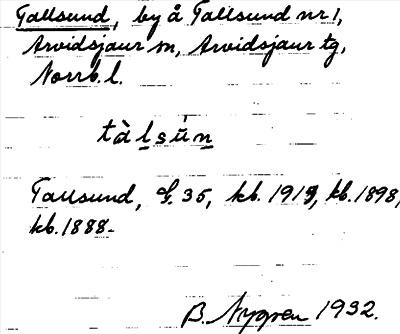 Tallsund, by å Tallsund nr 1,
Arvidsjaur sn, Arvidsjaur tg,
Norrb. l.
tàlsún
Tallsund, G. 35, kb. 1919, kb. 1898,
kb. 1888.
B. Nygren 1932.